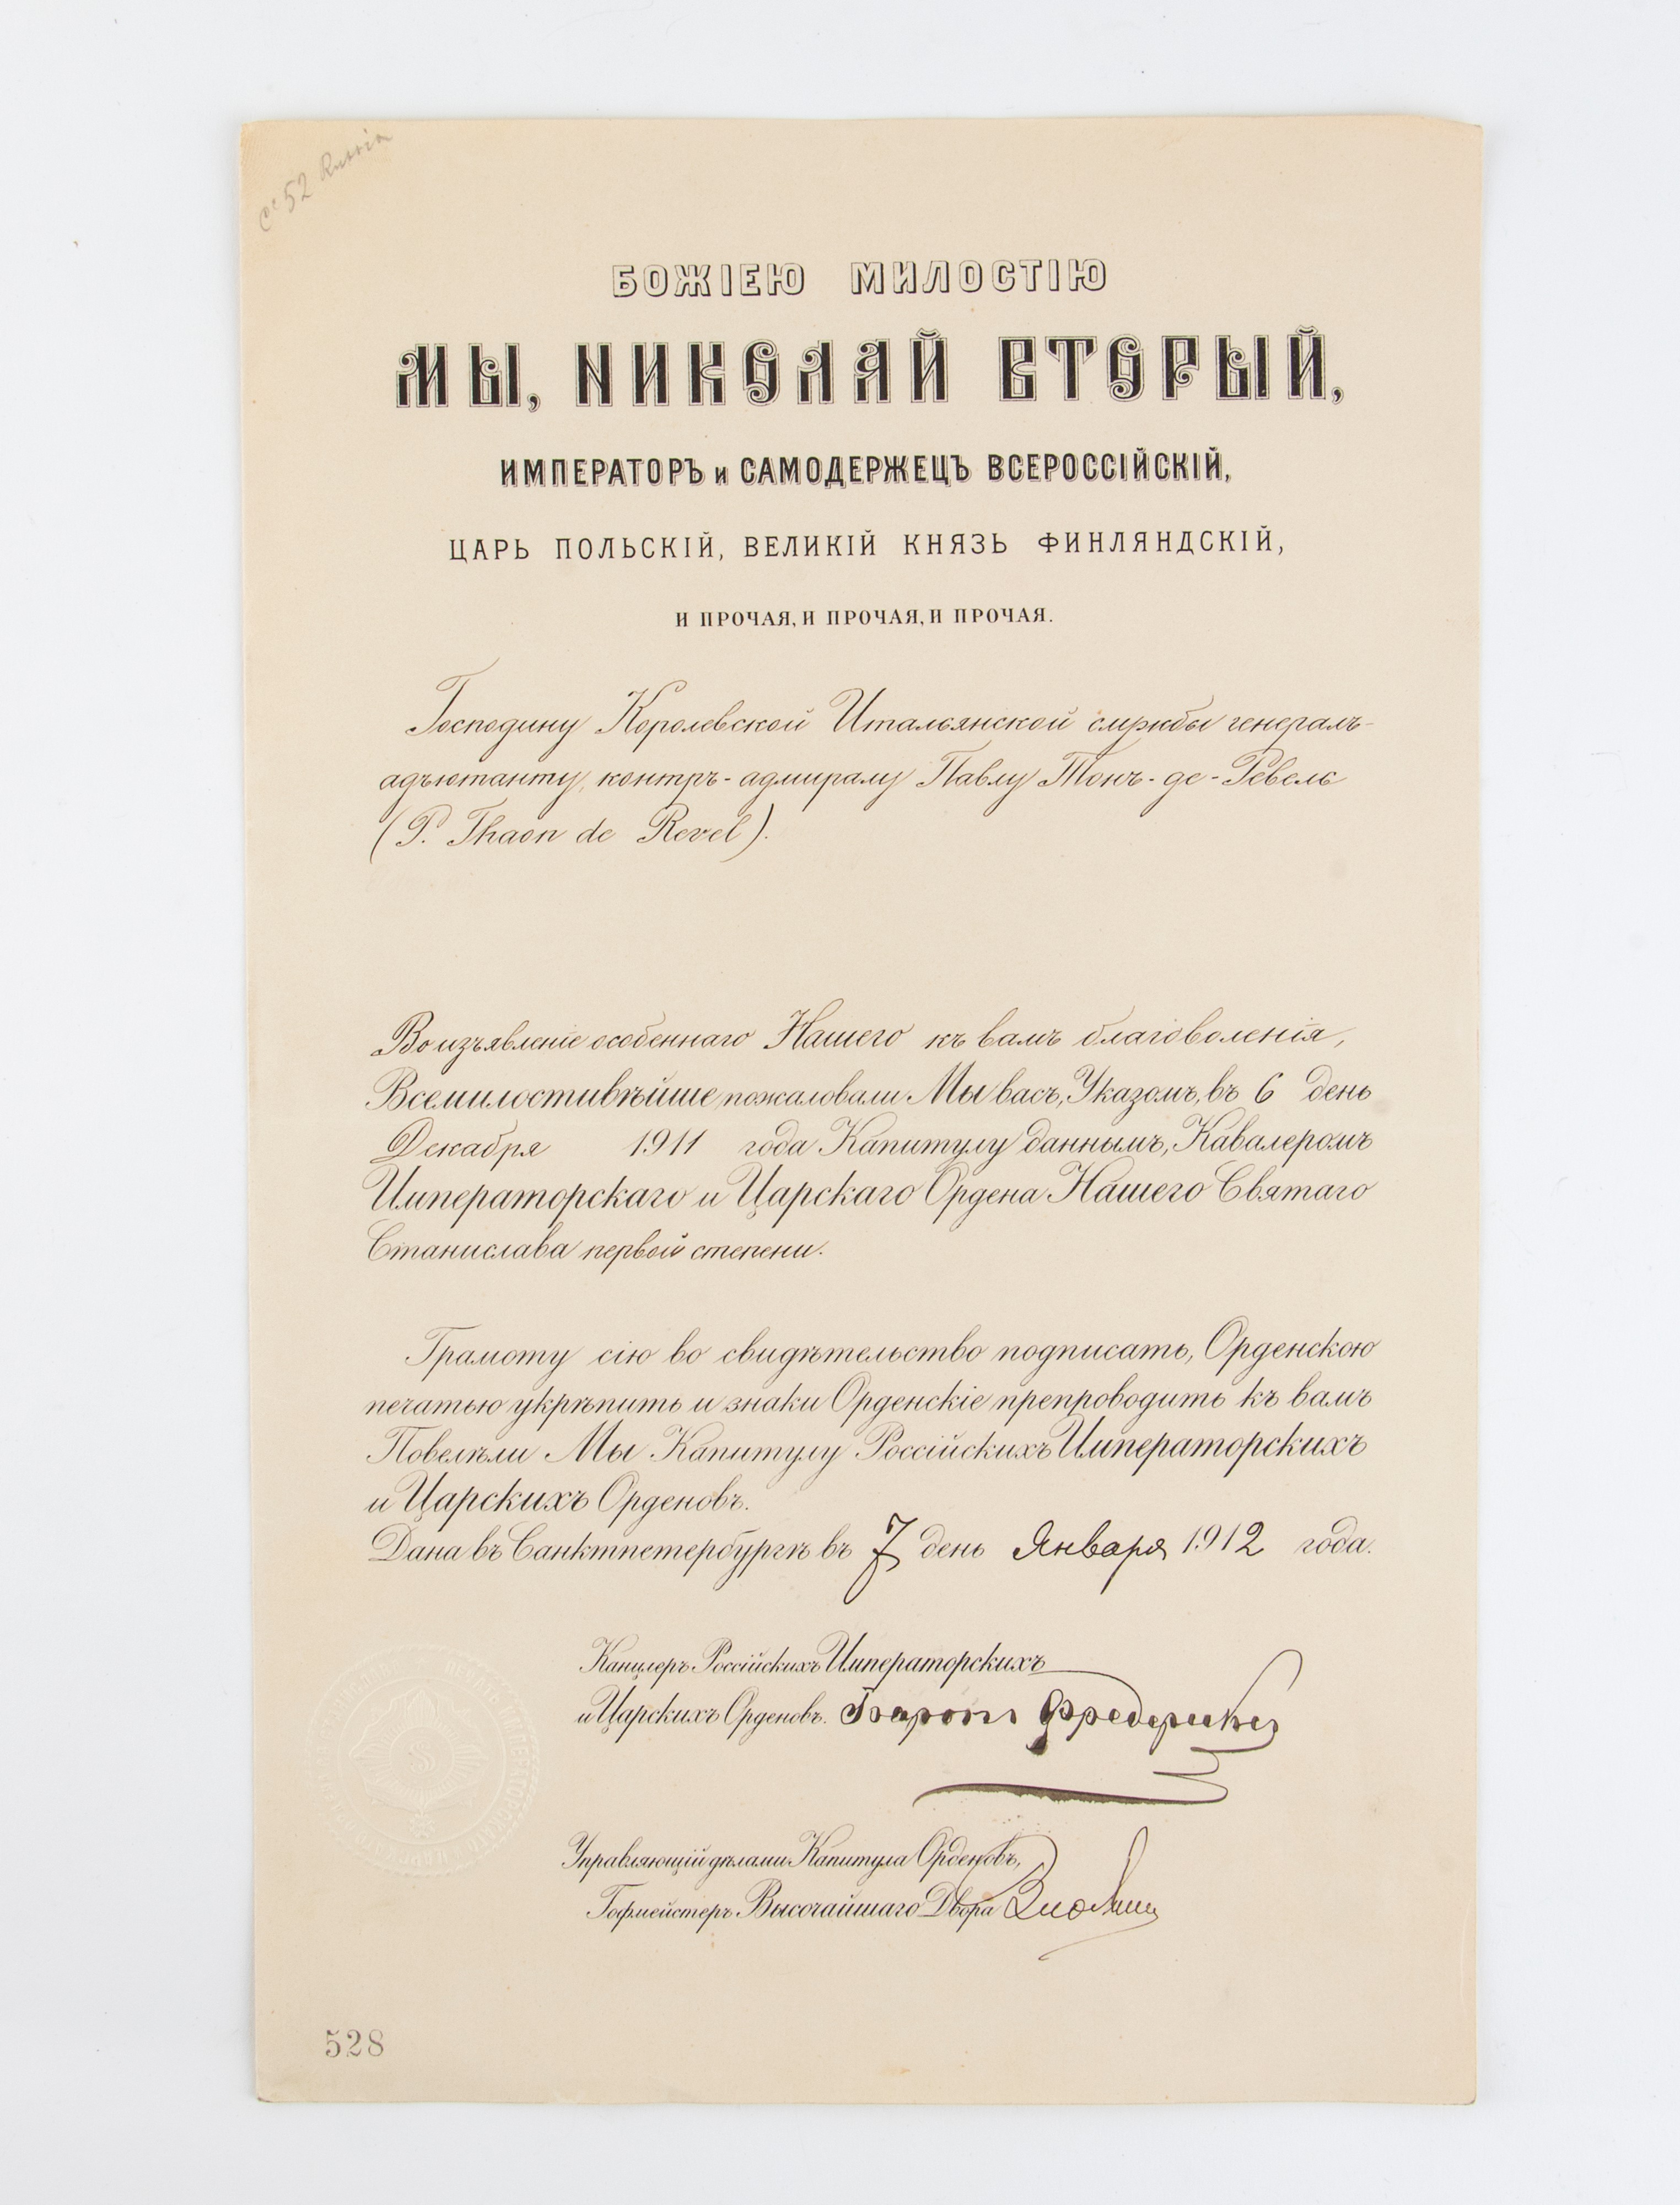 Cc 52 Russia
БОЖІЕЮ МИЛОСТІЮ
МЫ, НИКОЛАЙ ВТОРЫЙ,
ИМПЕРАТОРЪ и САМОДЕРЖЕЦЪ ВСЕРОССІЙСКІЙ,
ЦАРЬ ПОЛЬСКІЙ, ВЕЛИКІЙ КНЯЗЬ ФИНЛЯНДСКІЙ,
И ПРОЧАЯ, И ПРОЧАЯ, И ПРОЧАЯ.
Господину Королевской Итальянской службы генералъ-
адъютанту, контръ-адмиралу Павлу Тонъ-де-Ревель
(P. Thaon de Revel).
Во изъявленіе особеннаго Нашего къ вамъ благоволенія,
Всемилостивѣйше пожаловали Мы васъ, Указомъ, въ 6 день
Декабря 1911 года Капитулу даннымъ, Кавалеромъ
Императорскаго и Царскаго Ордена Нашего Святаго
Станислава первой степени.
Грамоту сію во свидѣтельство подписать, Орденскою
печатью укрѣпить и знаки Орденскіе препроводить къ вамъ
Повелѣли Мы Капитулу Россійскихъ Императорскихъ
и Царскихъ Орденовъ.
Дана въ Санктпетербургѣ въ 7 день Января 1912 года.
Канцлеръ Россійскихъ Императорскихъ
и Царскихъ Орденовъ. Баронъ Фредериксъ
Управляющій дѣлами Капитула Орденовъ,
Гофмейстеръ Высочайшаго Двора
528